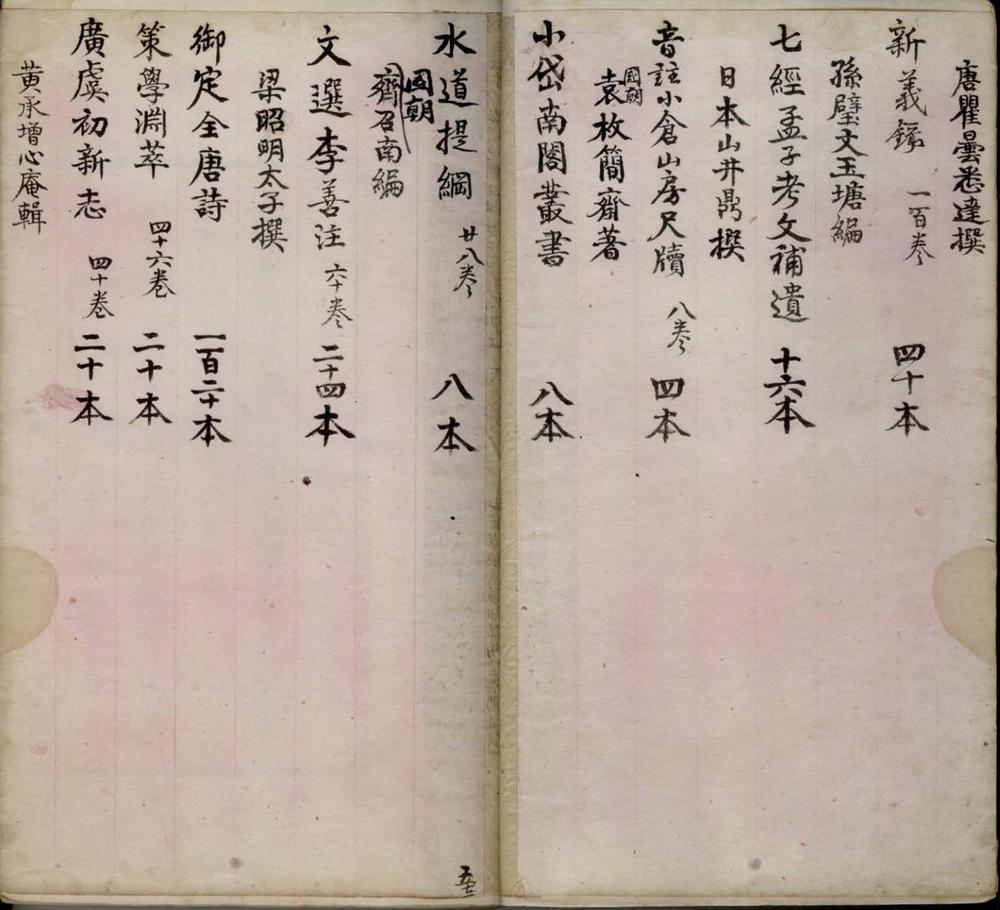 唐瞿曇悉達撰
新義錄 一百卷 四十本
孫璧文玉塘編
七經孟子考文補遺 十六本
日本山井鼎撰
音註小倉山房尺牘 八卷 四本
國朝袁枚簡齋著
小岱南閣叢書 八本
水道提綱 廿八卷 八本
國朝齊召南編
文選李善注 六十卷 二十四本
梁昭明太子撰
御定全唐詩 一百二十本
策學淵萃 四十六卷 二十本
廣虞初新志 四十卷 二十本
黃承增心庵輯